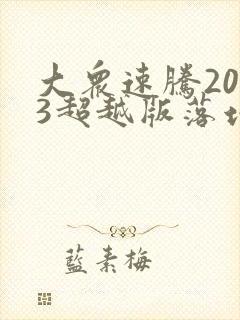 大衆速騰20
3超越版落
藍素梅